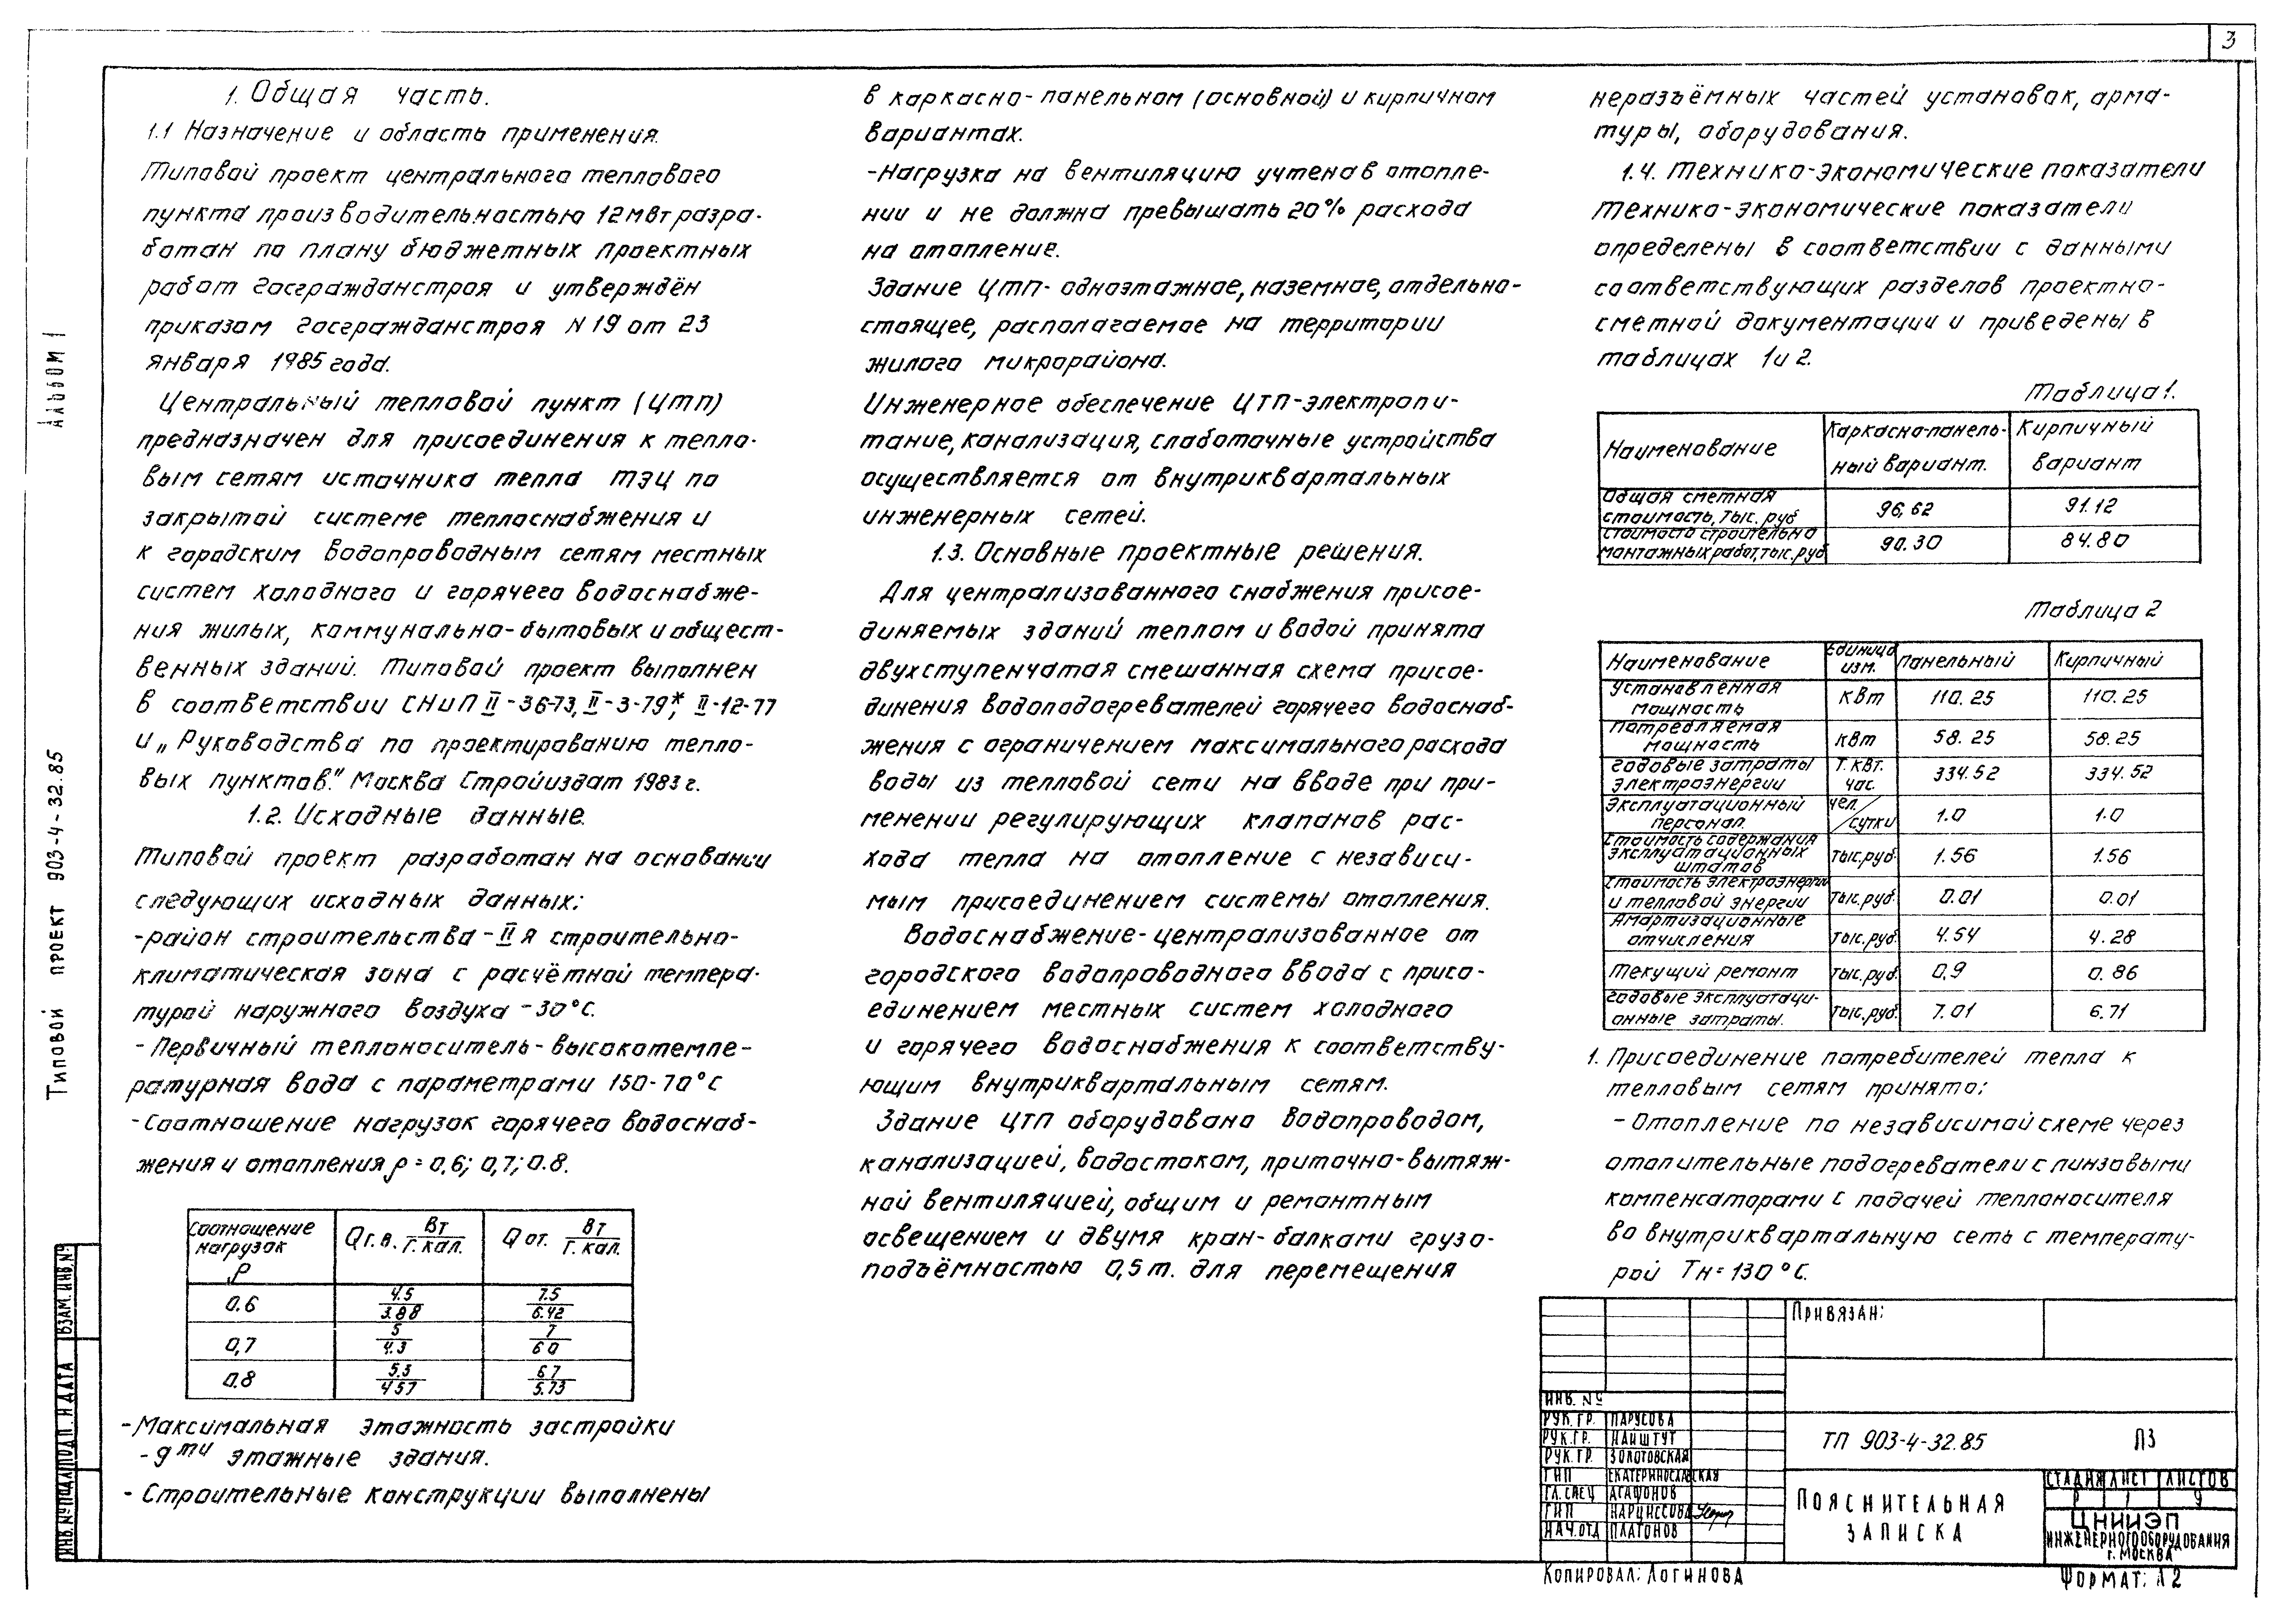 3
1. Общая часть.
1.1 Назначение и область применения.
Типовой проект центрального теплового
пункта производительностью 12мвт разра-
ботан по плану бюджетных проектных
работ Госгражданстроя и утверждён
приказом Госгражданстроя N 19 от 23
января 1985 года.
Центральный тепловой пункт (ЦТП)
предназначен для присоединения к тепло-
вым сетям источника тепла ТЭЦ по
закрытой системе теплоснабжения и
к городским водопроводным сетям местных
систем холодного и горячего водоснабже-
ния жилых, коммунально-бытовых и общест-
венных зданий. Типовой проект выполнен
в соответствии СНиП II-36-73, II-3-79*, II-12-77
и „Руководства по проектированию тепло-
вых пунктов." Москва Стройиздат 1983 г.
1.2. Исходные данные.
Типовой проект разработан на основании
следующих исходных данных:
-район строительства - II я строительно-
климатическая зона с расчётной темпера-
турой наружного воздуха -30°С.
- Первичный теплоноситель - высокотемпе-
ратурная вода с параметрами 150-70°С
-Соотношение нагрузок горячего водоснаб-
жения и отопления ρ = 0,6; 0,7; 0.8.
Соотношение нагрузок ρ | Qг.в. Вт/Г.кал. | Qот. Вт/Г.кал.
0.6 | 4.5/3.88 | 7.5/6.42
0,7 | 5/4.3 | 7/6 0
0.8 | 5.3/4 57 | 6 7/5.73
-Максимальная этажность застройки
- 9ти этажные здания.
- Строительные конструкции выполнены
в каркасно-панельном (основной) и кирпичном
вариантах.
-Нагрузка на вентиляцию учтена в отопле-
нии и не должна превышать 20% расхода
на отопление.
Здание ЦТП - одноэтажное, наземное, отдельно-
стоящее, располагаемое на территории
жилого микрорайона.
Инженерное обеспечение ЦТП-электропи-
тание, канализация, слаботочные устройства
осуществляется от внутриквартальных
инженерных сетей.
1.3. Основные проектные решения.
Для централизованного снабжения присое-
диняемых зданий теплом и водой принята
двухступенчатая смешанная схема присое-
динения водоподогревателей горячего водоснаб-
жения с ограничением максимального расхода
воды из тепловой сети на вводе при при-
менении регулирующих клапанов рас-
хода тепла на отопление с независи-
мым присоединением системы отопления.
Водоснабжение-централизованное от
городского водопроводного ввода с присо-
единением местных систем холодного
и горячего водоснабжения к соответству-
ющим внутриквартальным сетям.
Здание ЦТП оборудовано водопроводом,
канализацией, водостоком, приточно-вытяж-
ной вентиляцией, общим и ремонтным
освещением и двумя кран-балками грузо-
подъёмностью 0,5 т. для перемещения
неразъёмных частей установок, арма-
туры, оборудования.
1.4. Технико-экономические показатели
Технико-экономические показатели
определены в соответствии с данными
соответствующих разделов проектно-
сметной документации и приведены в
таблицах 1 и 2.
Таблица 1.
Наименование | Каркасно-панель-ный вариант. | Кирпичный вариант
Общая сметная стоимость, тыс. руб | 96,62 | 91.12
Стоимость строительно монтажных работ, тыс. руб | 90.30 | 84.80
Таблица 2
Наименование | Единица изм. | Панельный | Кирпичный
Установленная мощность | квт | 110. 25 | 110. 25
Потребляемая мощность | квт | 58. 25 | 58.25
Годовые затраты электроэнергии | Т. квт. час. | 334.52 | 334. 52
Эксплуатационный персонал. | чел./сутки | 1.0 | 1.0
Стоимость содержания эксплуатационных штатов | тыс.руб. | 1.56 | 1.56
Стоимость электроэнергии и тепловой энергии | тыс.руб. | 0.01 | 0.01
Амортизационные отчисления | тыс.руб. | 4.54 | 4.28
Текущий ремонт | тыс.руб. | 0,9 | 0. 86
Годовые эксплуатаци-онные затраты. | тыс.руб. | 7.01 | 6.71
1. Присоединение потребителей тепла к
тепловым сетям принято:
- Отопление по независимой схеме через
отопительные подогреватели с линзовыми
компенсаторами с подачей теплоносителя
во внутриквартальную сеть с температу-
рой Тн = 130°С.
Привязан:
Инв. №
Рук. гр. Парусова
Рук. гр. Найштут
Рук. гр. Золотовская
ГИП Екатеринославская
Гл. спец Агафонов
ГИП Нарциссова
Нач. отд Платонов
ТП 903-4-32.85 ПЗ
Пояснительная
записка
Стадия Лист Листов
Р 1 9
ЦНИИЭП
инженерного оборудования
г. Москва
Копировал: Логинова
Формат: А2
Альбом 1
Типовой проект 903-4-32.85
Взам. инв. №
Подп. и дата
Инв. № подл.